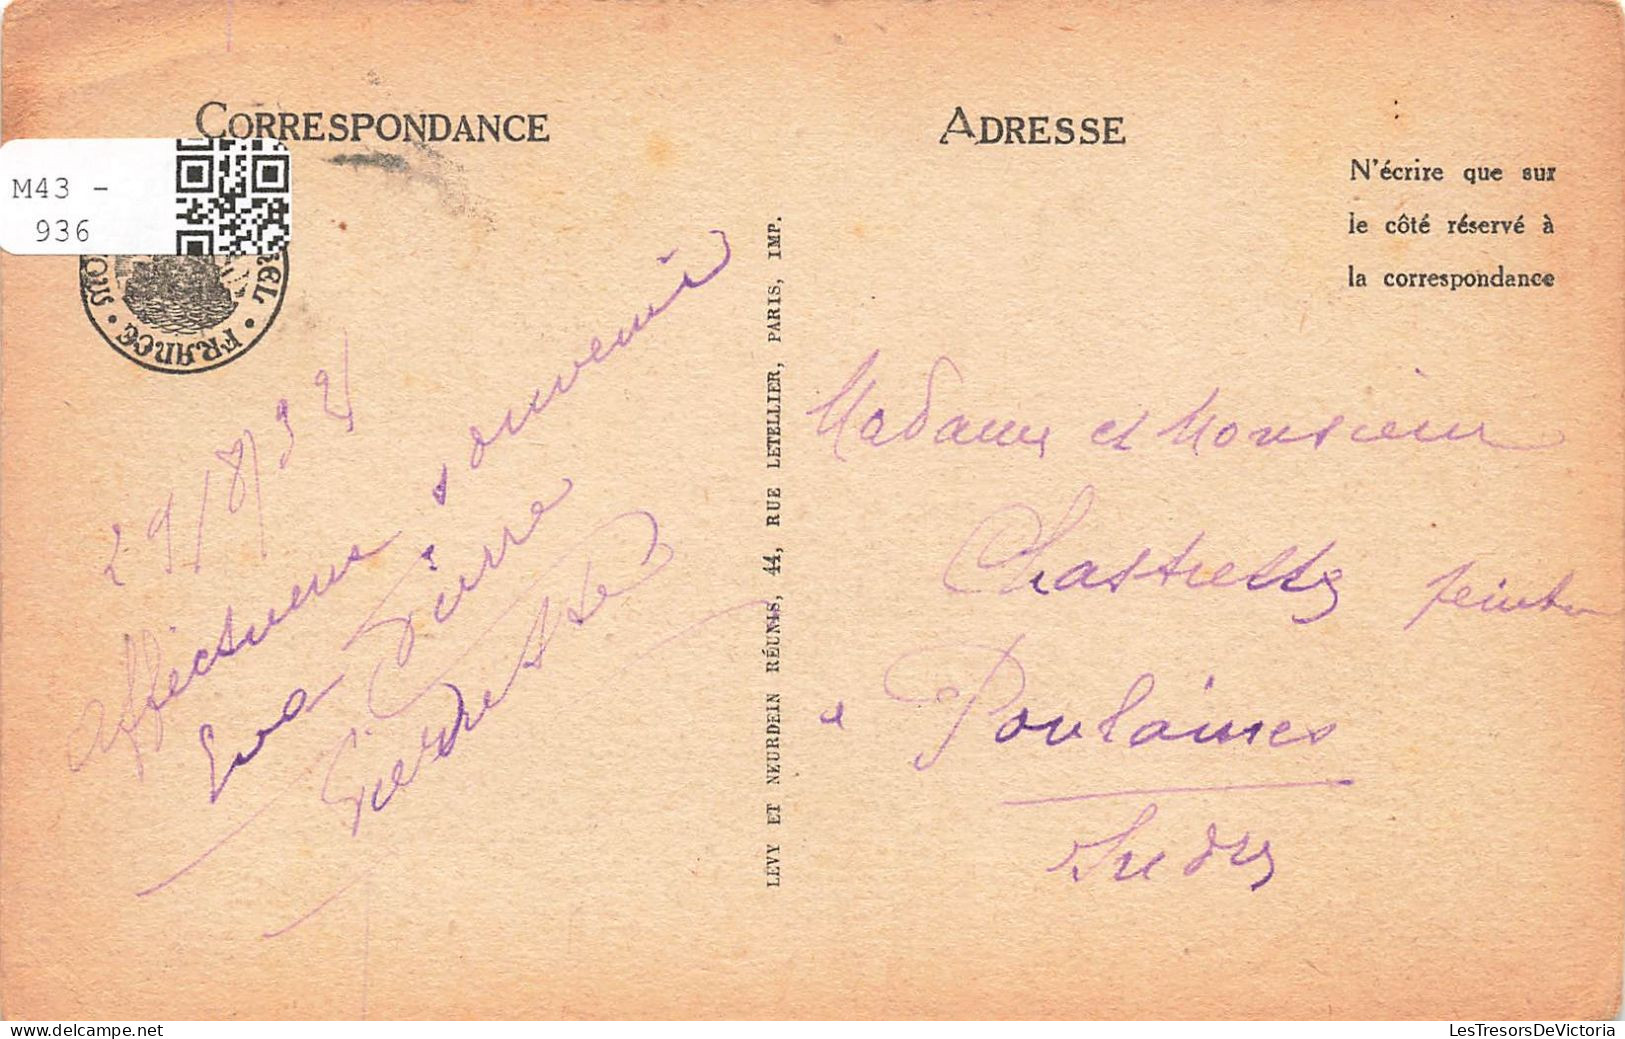 CORRESPONDANCE
ADRESSE
M43 -
936
N'écrire que sur
le côté réservé à
la correspondance
FRANCE
29/8/32
Affectueux souvenir
Pierre
LEVY ET NEURDEIN RÉUNIS, 44, RUE LETELLIER, PARIS, IMP.
Madame et Monsieur
Chastrette peintre
à Poulaines
Indre
delcampe.net
LesTresorsDeVictoria